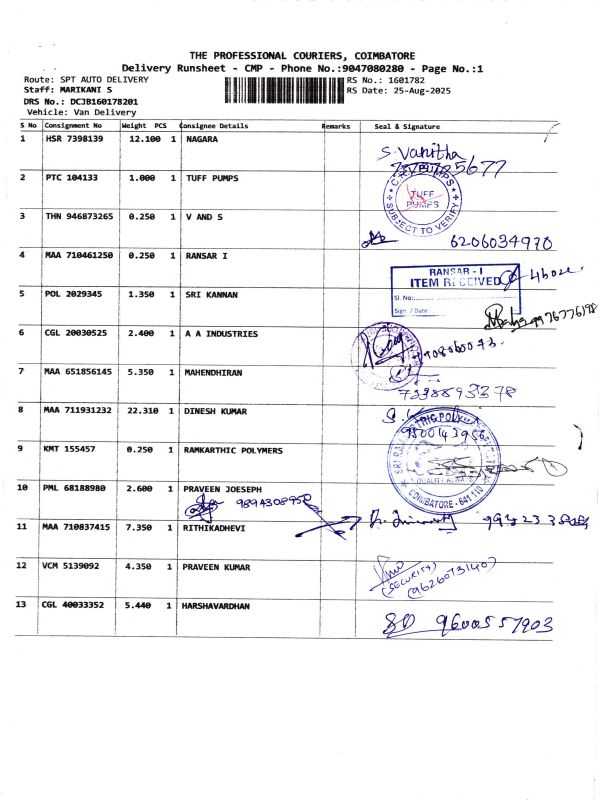 THE PROFESSIONAL COURIERS, COIMBATORE
Delivery Runsheet - CMP - Phone No.:9047080280 - Page No.:1
Route: SPT AUTO DELIVERY RS No.: 1601782
Staff: MARIKANI S RS Date: 25-Aug-2025
DRS No.: DCJB160178201
Vehicle: Van Delivery
S No Consignment No Weight PCS Consignee Details Remarks Seal & Signature
1 HSR 7398139 12.100 1 NAGARA
S. Vanitha
2 PTC 104133 1.000 1 TUFF PUMPS
TUFF PUMPS
SUBJECT TO VERIFY
3 THN 946873265 0.250 1 V AND S
6206034970
4 MAA 710461250 0.250 1 RANSAR I
RANSAR - I
ITEM RECEIVED
Sl. No:
Sign / Date
5 POL 2029345 1.350 1 SRI KANNAN
6 CGL 20030525 2.400 1 A A INDUSTRIES
7 MAA 651856145 5.350 1 MAHENDHIRAN
8 MAA 711931232 22.310 1 DINESH KUMAR
9 KMT 155457 0.250 1 RAMKARTHIC POLYMERS
QUALITY ALWAYS
COIMBATORE - 641 110
10 PML 68188980 2.600 1 PRAVEEN JOESEPH
11 MAA 710837415 7.350 1 RITHIKADHEVI
12 VCM 5139092 4.350 1 PRAVEEN KUMAR
(SECURITY)
13 CGL 40033352 5.440 1 HARSHAVARDHAN
9600557903